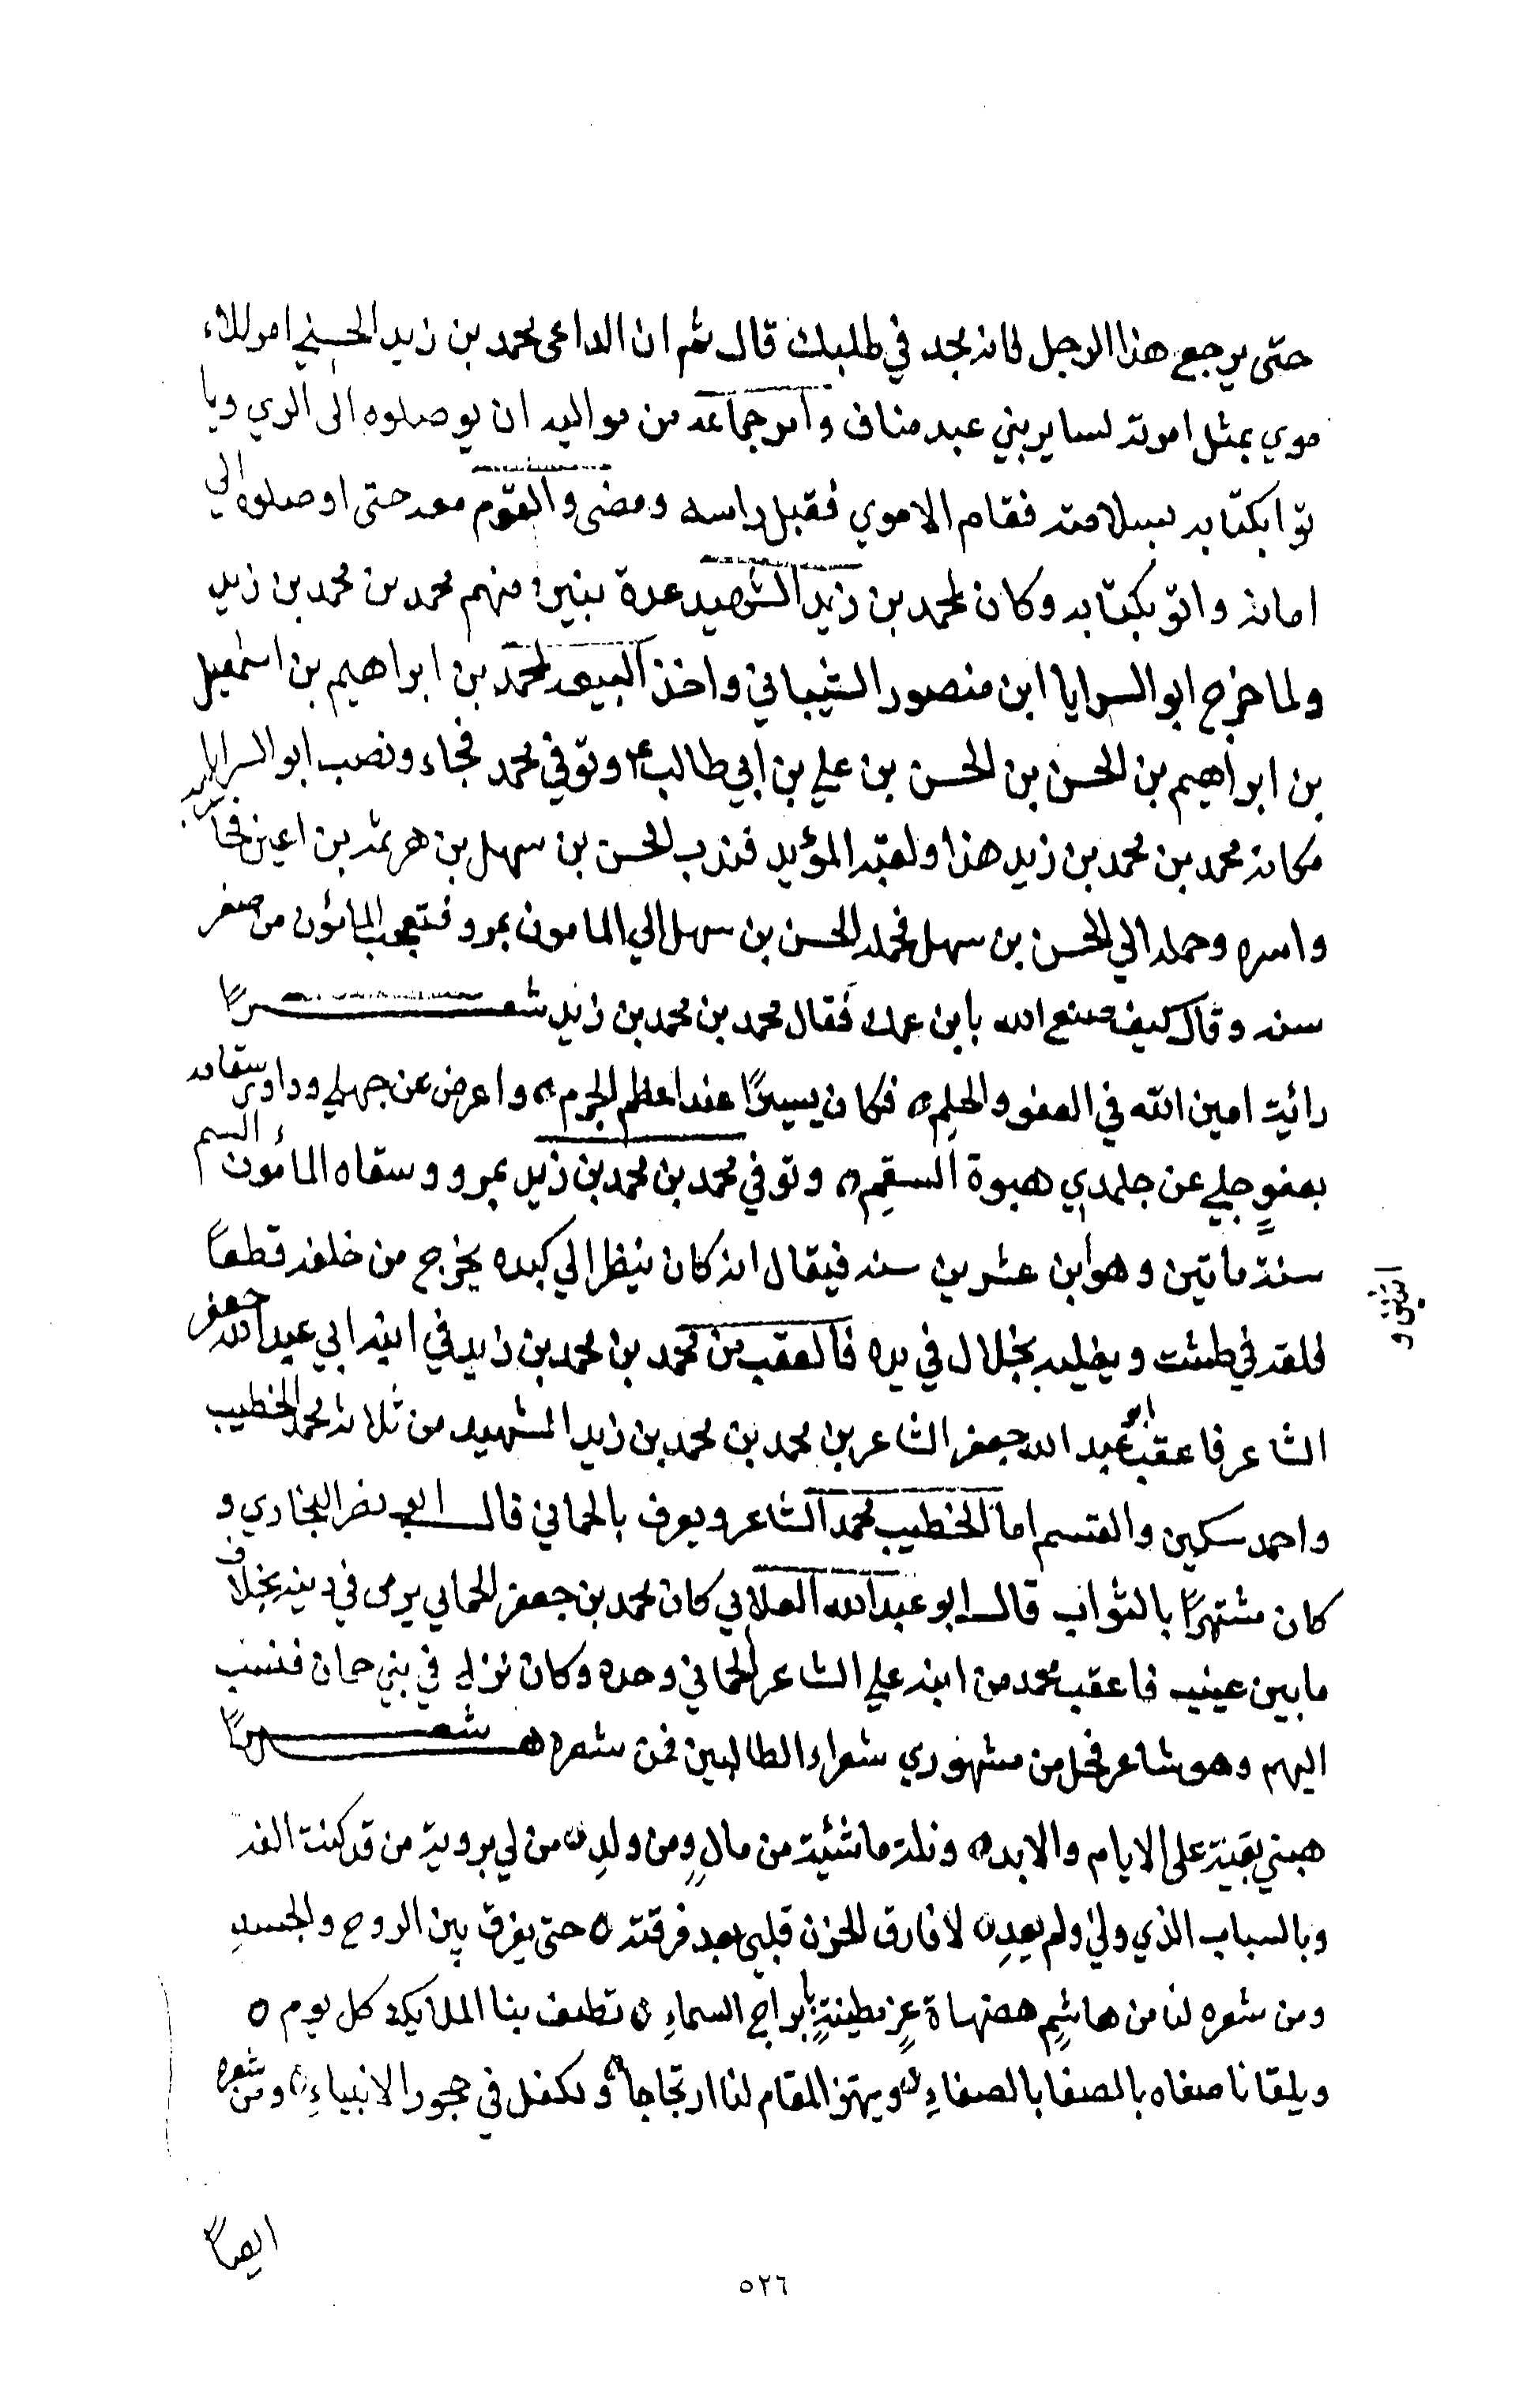 حتى يرجع هذا الرجل فانه يجد في طلبك قال ثم ان الداعى محمد بن زيد الحسني امر للا
موي بمثل امرته لساير بني عبد مناف وامر جماعة من مواليه ان يوصلوه الى الري ويا
توا بكتابه بسلامته فقام الاموي فقبل راسه ومضى والقوم معه حتى اوصلوه الي
امانه واتو بكتابه وكان لمحمد بن زيد الشهيد عدة بنين منهم محمد بن محمد بن زيد
ولما خرج ابو السرايا ابن منصور الشيباني واخذ البيعه لمحمد بن ابراهيم بن اسمعيل
بن ابراهيم بن الحسن بن الحسن بن علي بن ابي طالب ع وتوفي محمد فجاء ونصب ابو السرايا
مكانه محمد بن محمد بن زيد هذا ولقبه المؤيد فندب الحسن بن سهل بن هرثمه بن اعين فحاربه
واسره وحمله الي الحسن بن سهل فحمله الحسن بن سهل الي المامون بمرو فتعجب المائون من صغر
سنه وقال كيف صنع الله بابن عمك فقال محمد بن محمد بن زيد شعـــرا
رائيت امين الله في العفو والحلِم ه فكان يسيرًا عنداعظم الجرم ه واعرض عن جهلي وداوى سقامه
بعفوٍ جلي عن جلمدي هبوة السقِم ه وتوفي محمد بن محمد بن زيد بمرو وسقاه المأمون السم
سنة ماتين وهوابن عشرين سنه فيقال انه كان ينظر الي كبده يخرج من خلفه قطعًا
اثنتي و
فلقه في طشت ويقلبه بخلال في يده فالعقب من محمد بن محمد بن زيد في ابنه ابي عبد الله جعفر
الشاعر فاعقب ابو عبد الله جعفر الشاعر بن محمد بن محمد بن زيد الشهيد من ثلاثه محمد الخطيب
واحمد سكين والقسم اما الخطيب محمد الشاعر ويعرف بالحماني قال ابو نصر البخاري و
كان مشتهرًا بالثواب قال ابو عبد الله العلابي كان محمد بن جعفر الحماني يرمى في دينه بخلاف
ما بين عينيه فاعقب محمد من ابنه علي الشاعر الحماني وحده وكان نزل في بني حمان فنسب
اليهم وهو شاعر فحل من مشهوري شعراء الطالبين فمن شعره شعـــرًا
هبني بقيت على الايام والابد ه ونلت ماشئيت من مالٍ ومن ولدِ ه من لي بروية من قد كنت الفه
وبالسباب الذي ولي ولم يعدِ ه لا فارق الحزن قلبي بعد فرقته ه حتى يفرق بين الروح والجسدِ
ومن شعره لنا من هاشمٍ هضهاة عزٍ مطينةٍ بابراج السماءِ ه تطيف بنا الملايكة كل يوم ه
ويلقانا صفاه بالصفا بالصفاءِ ه ويهتز المقام لنا ارتجاجا ه وتكفل في حجور الانبياءِ ه ومن شعره
ايضًا
٥٢٦